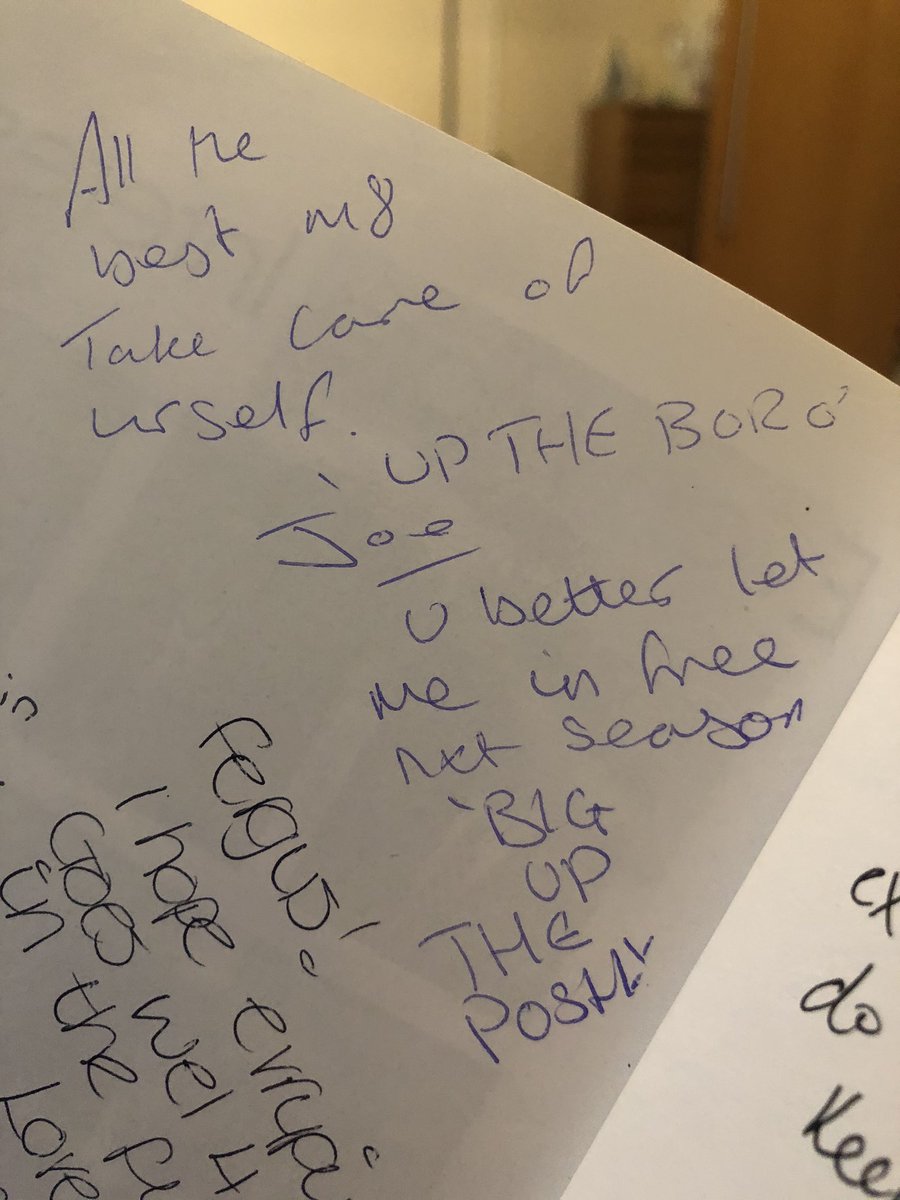 All the
best m8
Take care of
urself.
' UP THE BORO'
Joe
U better let
me in free
nxt season
'BIG
UP
THE
POSH!'
Fergus!
I hope evryþi
Goes wel 4
in the fu
Love
in
ex
do
Kee